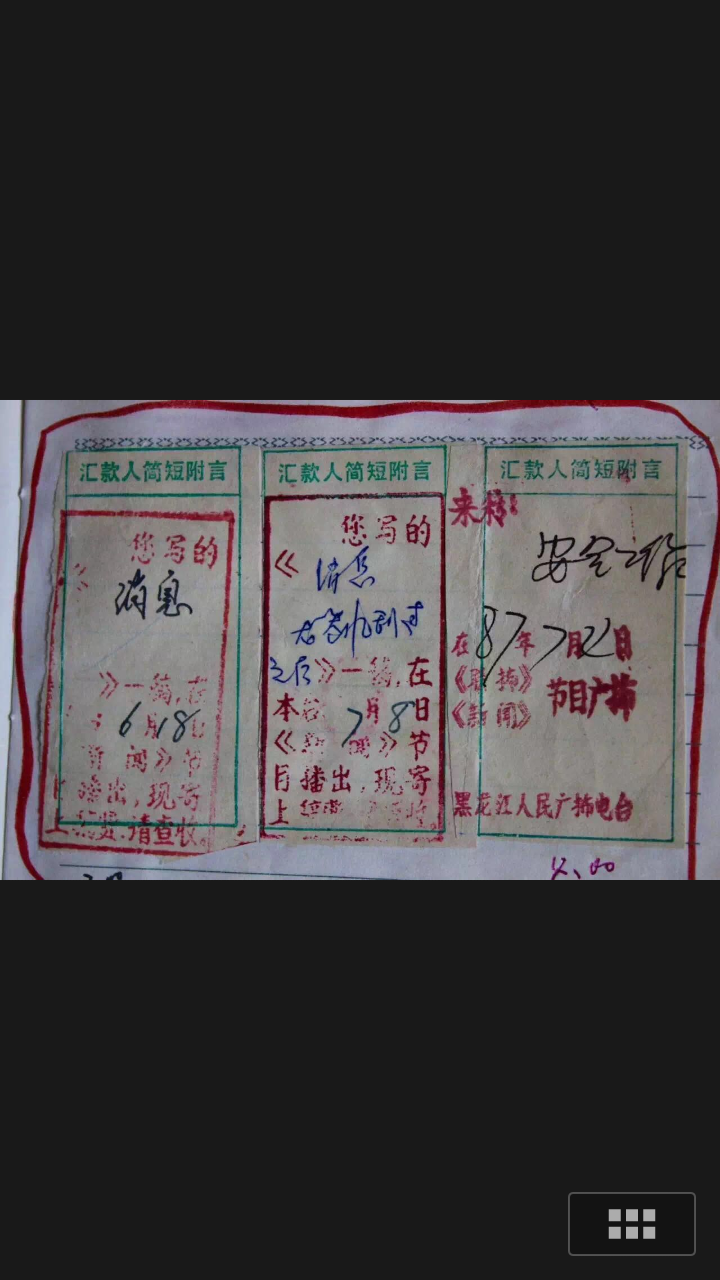 汇款人简短附言
您写的
《
消息
》一稿,在
6月18日
新闻》节
目播出,现寄
上稿费.请查收。
汇款人简短附言
您写的
《消息
之后》一稿,在
本台 7月8日
《新闻》节
目播出,现寄
上稿费
汇款人简短附言
来稿:
安全工作
在87年7月22日
《联播》
《新闻》
节目广播
黑龙江人民广播电台
4.00